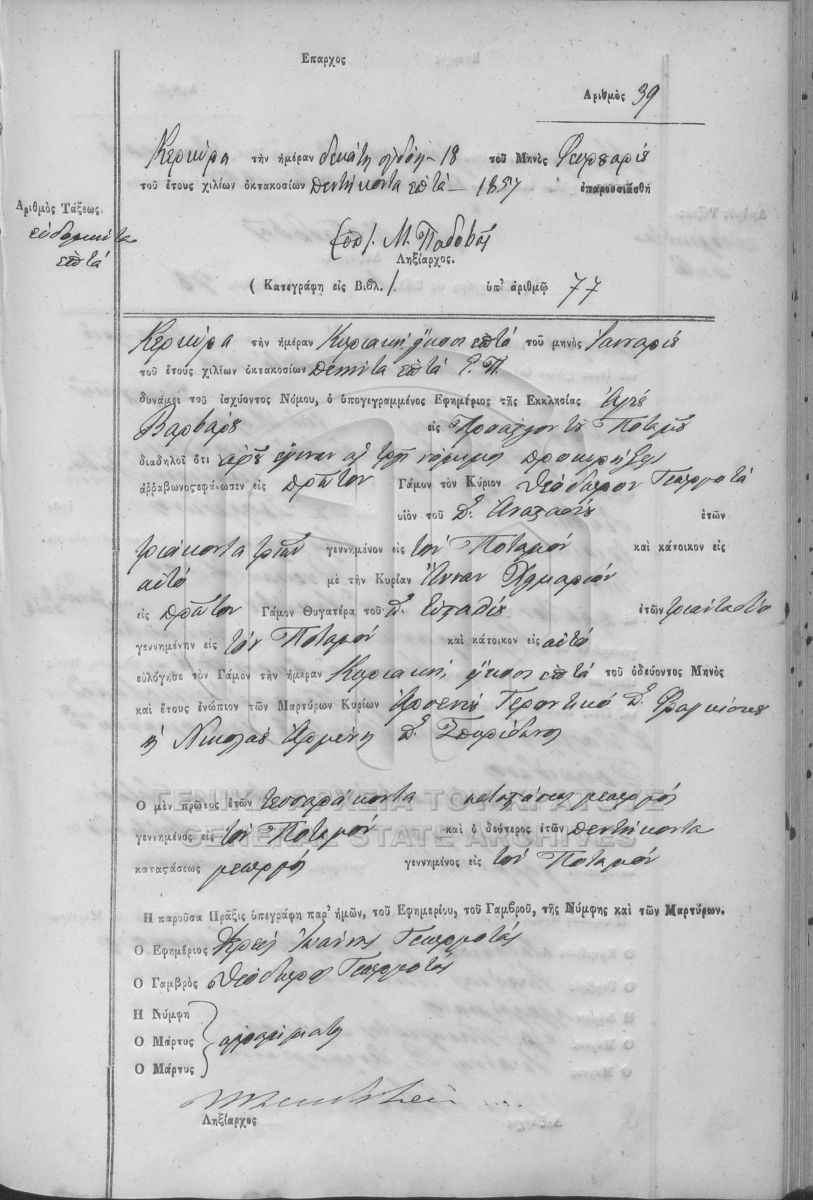 Επαρχος
Αριθμὸς 39
Κερκύρα τὴν ἡμέραν δεκάτη ὀγδόη - 18 τοῦ Μηνὸς Φεβρουαρίου
τοῦ ἔτους χιλίων ὀκτακοσίων πεντήκοντα ἑπτά - 1857 ἐπαρουσιάσθη
Αριθμὸς Τάξεως.
εὐδομήκοντα
ἑπτά
Μ. Παδοβᾶς
Ληξίαρχος.
( Κατεγράφη εἰς Βιβλ. /. ὑπ' ἀριθμῷ 77
Κερκύρα τὴν ἡμέραν Κυριακὴ εἴκοσι ἑπτά τοῦ μηνὸς Ἰανουαρίου
τοῦ ἔτους χιλίων ὀκτακοσίων πενῆντα ἑπτά Ε. Π.
δυνάμει τοῦ ἰσχύοντος Νόμου, ὁ ὑπογεγραμμένος Εφημέριος τῆς Εκκλησίας Ἁγίας
Βαρβάρας εἰς Προάστιον τοῦ Ποταμοῦ
διαδηλοῖ ὅτι ἀφοῦ ἔγιναν αἱ τρεῖς νόμιμοι προκηρύξεις
ἀῤῥαβωνοςεφάνωσεν εἰς πρῶτον Γάμον τὸν Κύριον Θεόδωρον Γεωργοτά
υἱὸν τοῦ ἐτῶν
τριάκοντα τριῶν γεννημένον εἰς τὸν Ποταμόν καὶ κάτοικον εἰς
αὐτό μὲ τὴν Κυρίαν Ἄνναν
εἰς πρῶτον Γάμον Θυγατέρα τοῦ Εὐσταθίου ἐτῶν
γεννημένην εἰς τὸν Ποταμόν καὶ κάτοικον εἰς αὐτό
εὐλόγησε τὸν Γάμον τὴν ἡμέραν Κυριακή, εἴκοσι ἑπτά τοῦ ὁδεύοντος Μηνὸς
καὶ ἔτους ἐνώπιον τῶν Μαρτύρων Κυρίων Ἀρσένη Γεροντικό Φραγκίσκου
ἡ Νικολάου Ἀρμένη Σπυρίδωνος
Ο μὲν πρῶτος ἐτῶν τεσσαράκοντα καταστάσεως γεωργός
γεννημένος εἰς τὸν Ποταμόν καὶ ὁ δεύτερος ἐτῶν πεντήκοντα
καταςάσεως γεωργός γεννημένος εἰς τὸν Ποταμόν
Η παροῦσα Πράξις ὑπεγράφη παρ' ἡμῶν, τοῦ Εφημερίου, τοῦ Γαμβροῦ, τῆς Νύμφης καὶ τῶν Μαρτύρων.
Ο Εφημέριος Ἱερεύς Ἰωάννης Γεωργοτάς
Ο Γαμβρὸς Θεόδωρος Γεωργοτάς
Η Νύμφη
Ο Μάρτυς ἀγράμματοι
Ο Μάρτυς
Ληξίαρχος
ΓΕΝΙΚΑ ΑΡΧΕΙΑ ΤΟΥ ΚΡΑΤΟΥΣ
GENERAL STATE ARCHIVES